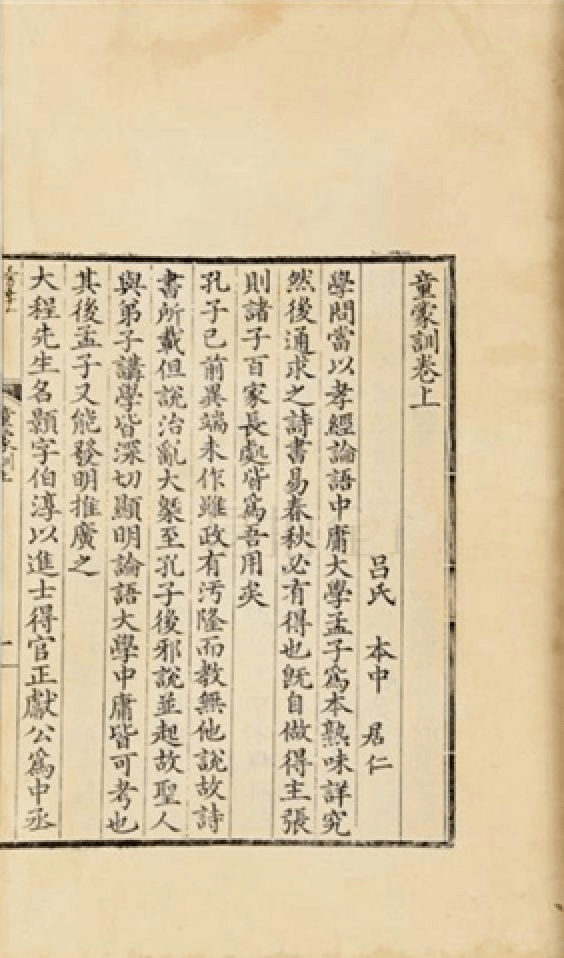 童蒙訓卷上
呂氏 本中 居仁
學問當以孝經論語中庸大學孟子爲本熟味詳究
然後通求之詩書易春秋必有得也旣自做得主張
則諸子百家長處皆爲吾用矣
孔子已前異端未作雖政有汚隆而教無他說故詩
書所載但說治亂大槩至孔子後邪說並起故聖人
與弟子講學皆深切顯明論語大學中庸皆可考也
其後孟子又能發明推廣之
大程先生名顥字伯淳以進士得官正獻公爲中丞